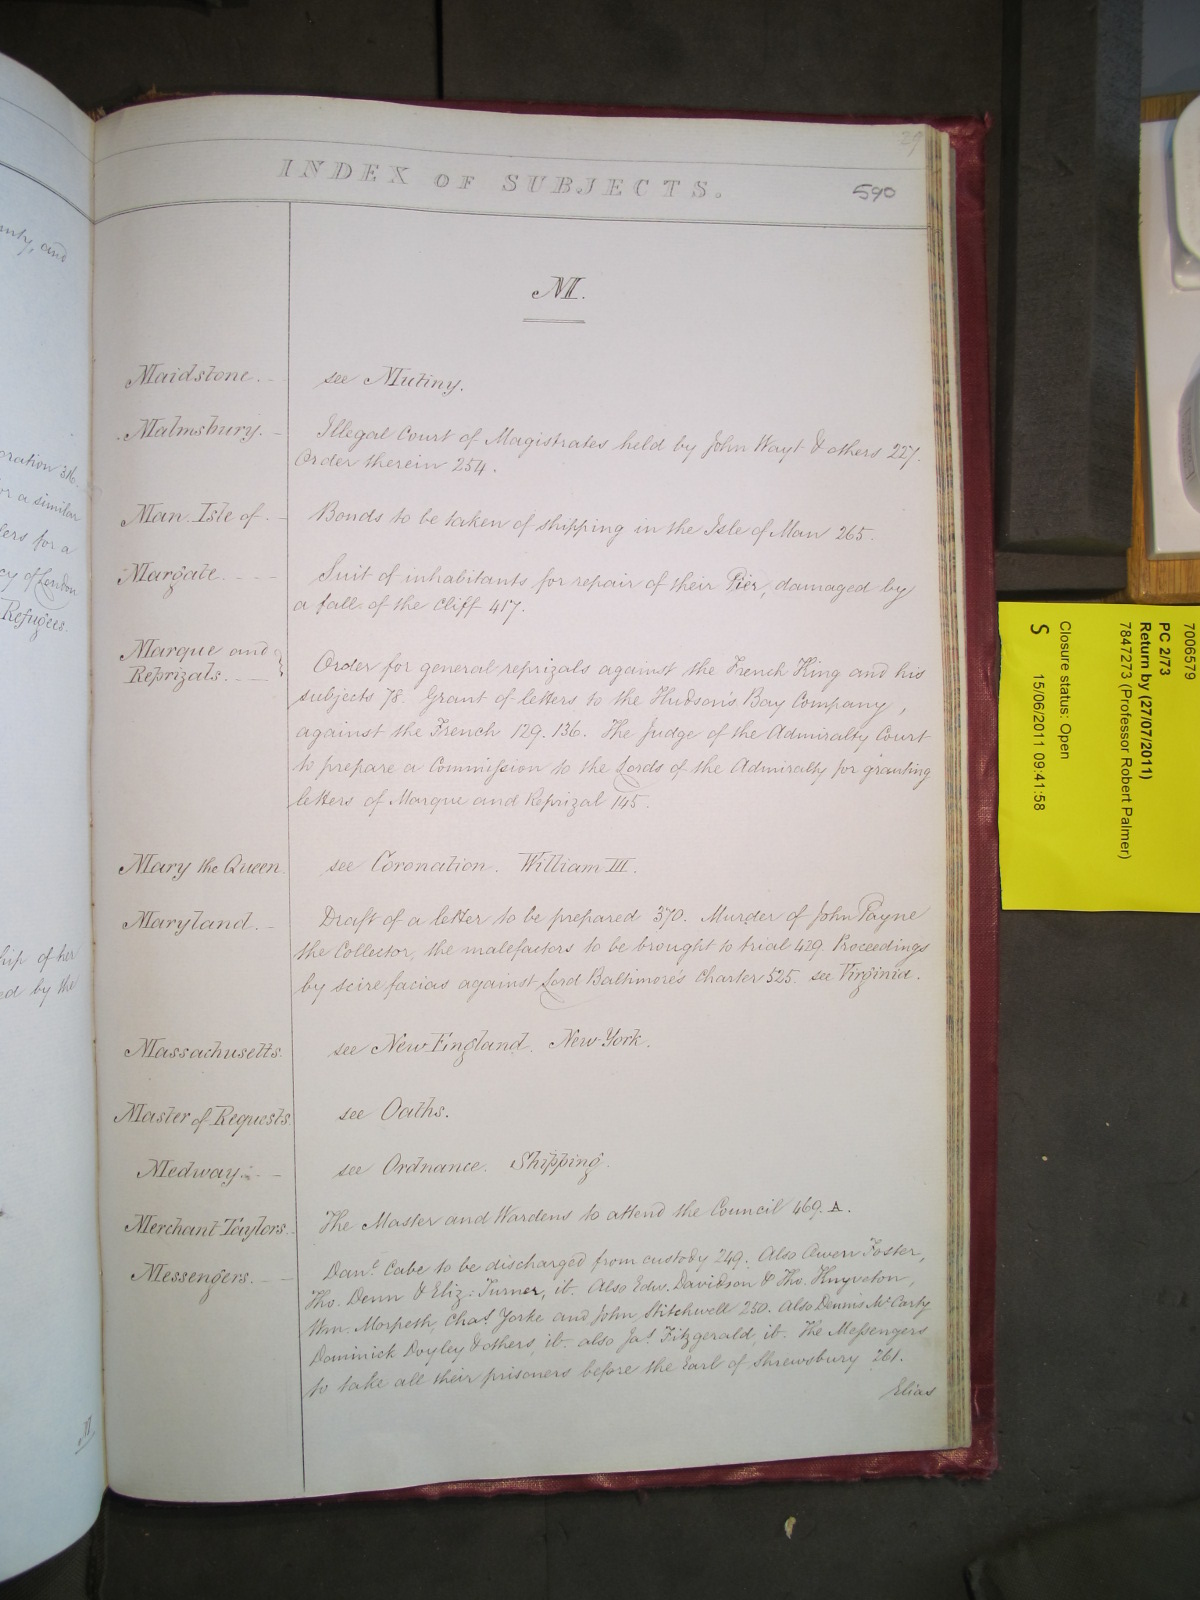 29
INDEX OF SUBJECTS.
590
M.
Maidstone. - - see Mutiny.
Malmsbury. - Illegal Court of Magistrates held by John Wayt & others 227.
Order therein 254.
Man. Isle of. - Bonds to be taken of shipping in the Isle of Man 265.
Margate. - - - Suit of inhabitants for repair of their Pier, damaged by
a fall of the Cliff 417.
Marque and
Reprizals. - - Order for general reprizals against the French King and his
subjects 78. Grant of letters to the Hudson's Bay Company,
against the French 129. 136. The Judge of the Admiralty Court
to prepare a Commission to the Lords of the Admiralty for granting
letters of Marque and Reprizal 145.
Mary the Queen see Coronation. William III.
Maryland. - Draft of a letter to be prepared 370. Murder of John Payne
the Collector, the malefactors to be brought to trial 429. Proceedings
by scire facias against Lord Baltimore's charter 525. see Virginia.
Massachusetts. see New England. New York.
Master of Requests. see Oaths.
Medway. - - see Ordnance. Shipping.
Merchant Taylors. The Master and Wardens to attend the Council 469. A.
Messengers. - - Danl. Cabe to be discharged from custody 249. Also Owen Foster,
Tho. Denn & Eliz: Turner, ib. Also Edw. Davidson & Tho. Knyveton,
Wm. Morpeth, Chas. Yorke and John Stitchwell 250. Also Dennis McCarty
Dominick Doyley & others, ib. also Jas. Fitzgerald, ib. The Messengers
to take all their prisoners before the Earl of Shrewsbury 261.
Elias
and
oration 316.
or a similar
ers for a
cy of London
Refugees.
hip of her
ed by the
7006579
PC 2/73
Return by (27/07/2011)
7847273 (Professor Robert Palmer)
Closure status: Open
S 15/06/2011 09:41:58